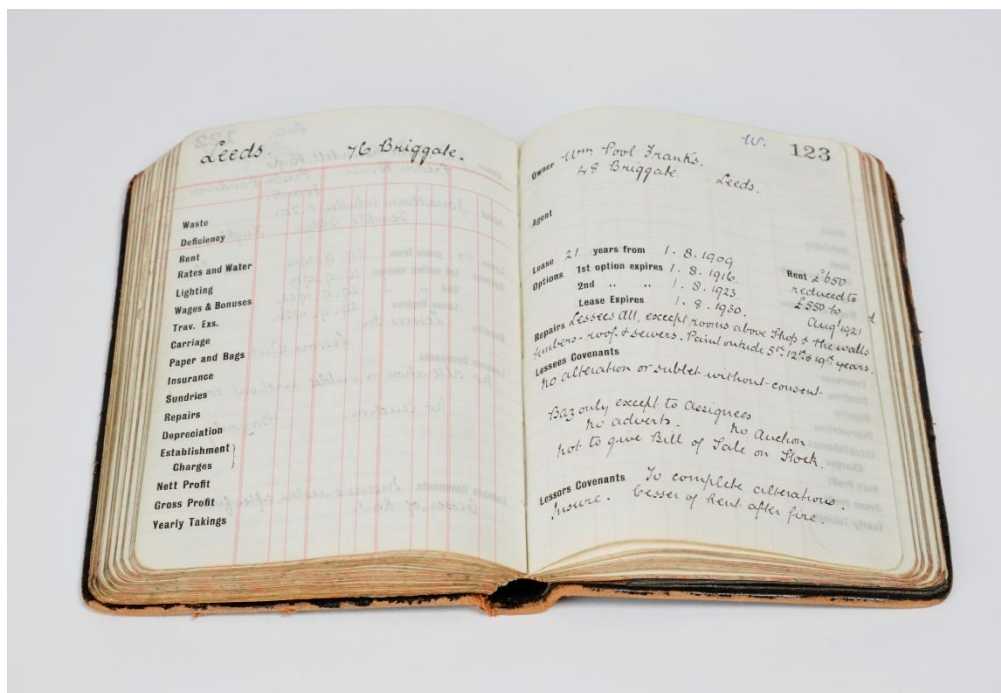 Leeds. 76 Briggate.
Waste
Deficiency
Rent
Rates and Water
Lighting
Wages & Bonuses
Trav. Exs.
Carriage
Paper and Bags
Insurance
Sundries
Repairs
Depreciation
Establishment }
Charges
Nett Profit
Gross Profit
Yearly Takings
W. 123
Owner Wm Pool Franks.
48 Briggate Leeds.
Agent
Lease 21 years from 1. 8. 1909
Options 1st option expires 1. 8. 1916. Rent £650
2nd " " 1. 8. 1923 reduced to
Lease Expires 1. 8. 1930. £550 to
Aug 1921
Repairs Lessees all, except rooms above Shop & the walls
timbers. roof & sewers. Paint outside 5th 12th & 19th years.
Lessees Covenants
no alteration or sublet without consent
Baz only except to assignees
no adverts. no Auction
not to give Bill of Sale on Stock.
Lessors Covenants To complete alterations.
Insure. Cesser of Rent after fire.